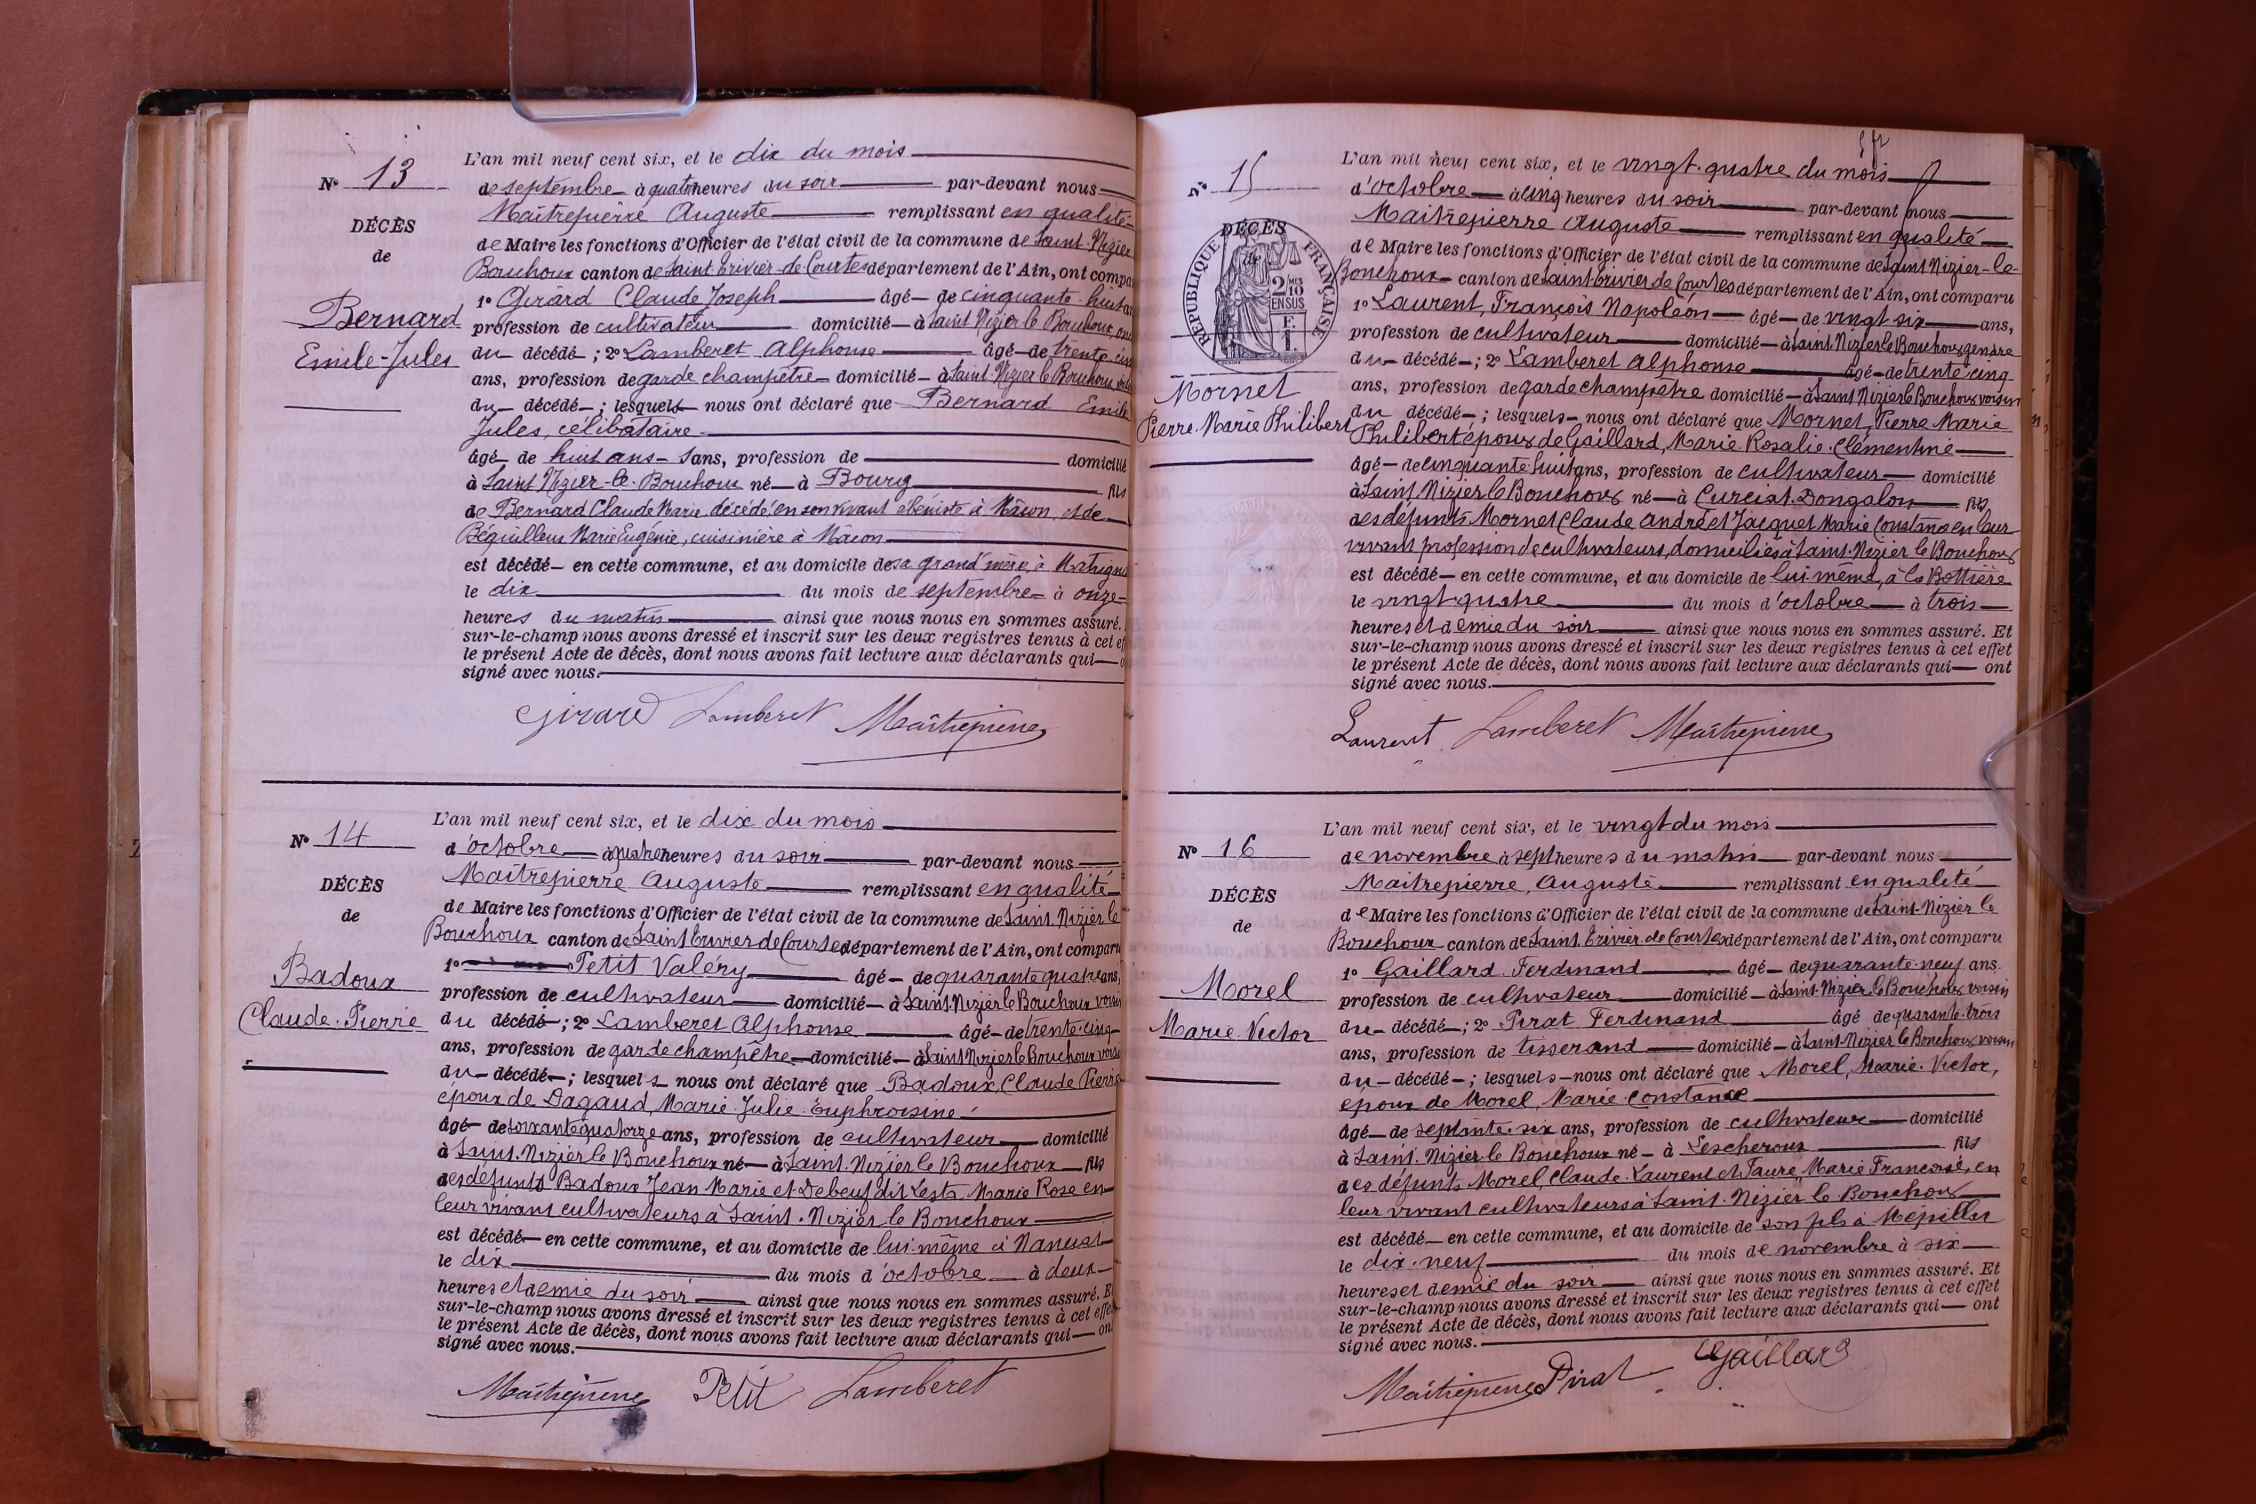 N° 13
DÉCÈS
de
Bernard
Emile-Jules
L'an mil neuf cent six, et le dix du mois
de septembre à quatre heures du soir par-devant nous
Maîtrepierre Auguste remplissant en qualité
de Maire les fonctions d'Officier de l'état civil de la commune de Saint-Nizier
Bouchoux canton de Saint Trivier-de-Courtes département de l'Ain, ont compa
1° Girard Claude Joseph âgé de cinquante-huit
profession de cultivateur domicilié à Saint Nizier le Bouchoux
du décédé ; 2° Lamberet Alphonse âgé de trente cinq
ans, profession de garde champêtre domicilié à Saint Nizier le Bouchoux
du décédé ; lesquels nous ont déclaré que Bernard Emile
Jules, célibataire
âgé de huit ans sans, profession de domicilié
à Saint Nizier-le-Bouchoux né à Bourg fils
de Bernard Claude Marie décédé en son vivant ébéniste à Mâcon, et de
Béquilleux Marie Eugénie, cuisinière à Mâcon
est décédé en cette commune, et au domicile de sa grand'mère, à
le dix du mois de septembre à onze
heures du matin ainsi que nous nous en sommes assuré.
sur-le-champ nous avons dressé et inscrit sur les deux registres tenus à cet ef
le présent Acte de décès, dont nous avons fait lecture aux déclarants qui
signé avec nous.
Girard Lamberet Maîtrepierre
N° 14
DÉCÈS
de
Badoux
Claude-Pierre
L'an mil neuf cent six, et le dix du mois
d'octobre à quatre heures du soir par-devant nous
Maîtrepierre Auguste remplissant en qualité
de Maire les fonctions d'Officier de l'état civil de la commune de Saint-Nizier le
Bouchoux canton de Saint Trivier de Courtes département de l'Ain, ont comparu
1° Petit Valéry âgé de quarante quatre ans,
profession de cultivateur domicilié à Saint-Nizier le Bouchoux voisin
du décédé ; 2° Lamberet Alphonse âgé de trente-cinq
ans, profession de garde champêtre domicilié à Saint Nizier le Bouchoux voisin
du décédé ; lesquels nous ont déclaré que Badoux, Claude Pierre
époux de Dagaud, Marie-Julie-Euphroisine
âgé de soixante quatorze ans, profession de cultivateur domicilié
à Saint-Nizier le Bouchoux né à Saint-Nizier le Bouchoux fils
des défunts Badoux Jean Marie et Debeuf dit Lesta Marie Rose en
leur vivant cultivateurs à Saint-Nizier le Bouchoux
est décédé en cette commune, et au domicile de lui-même à Nancuat
le dix du mois d'octobre à deux
heures et demie du soir ainsi que nous nous en sommes assuré. E
sur-le-champ nous avons dressé et inscrit sur les deux registres tenus à cet effet
le présent Acte de décès, dont nous avons fait lecture aux déclarants qui on
signé avec nous.
Maîtrepierre Petit Lamberet
N° 15
DÉCÈS
de
RÉPUBLIQUE FRANÇAISE
2/10 EN SUS
Mornet
Pierre-Marie Philibert
L'an mil neuf cent six, et le vingt-quatre du mois
d'octobre à cinq heures du soir par-devant nous
Maitrepierre Auguste remplissant en qualité
de Maire les fonctions d'Officier de l'état civil de la commune de Saint Nizier-le
Bouchoux canton de Saint Trivier de Courtes département de l'Ain, ont comparu
1° Laurent, François Napoléon âgé de vingt six ans,
profession de cultivateur domicilié à Saint Nizier le Bouchoux gendre
du décédé ; 2° Lamberet Alphonse âgé de trente cinq
ans, profession de garde champêtre domicilié à Saint Nizier le Bouchoux voisin
du décédé ; lesquels nous ont déclaré que Mornet, Pierre Marie
Philibert époux de Gaillard, Marie-Rosalie-Clémentine
âgé de cinquante huit ans, profession de cultivateur domicilié
à Saint Nizier le Bouchoux né à Curciat Dongalon fils
des défunts Mornet Claude André et Jacquet Marie Constance en leur
vivant profession de cultivateurs, domiciliés à Saint-Nizier le Bouchoux
est décédé en cette commune, et au domicile de lui-même, à la Bottière
le vingt-quatre du mois d'octobre à trois
heures et demie du soir ainsi que nous nous en sommes assuré. Et
sur-le-champ nous avons dressé et inscrit sur les deux registres tenus à cet effet
le présent Acte de décès, dont nous avons fait lecture aux déclarants qui ont
signé avec nous.
Laurent Lamberet Maîtrepierre
N° 16
DÉCÈS
de
Morel
Marie-Victor
L'an mil neuf cent six, et le vingt du mois
de novembre à sept heures du matin par-devant nous
Maitrepierre, Auguste remplissant en qualité
de Maire les fonctions d'Officier de l'état civil de la commune de Saint-Nizier le
Bouchoux canton de Saint Trivier de Courtes département de l'Ain, ont comparu
1° Gaillard Ferdinand âgé de quarante-neuf ans.
profession de cultivateur domicilié à Saint-Nizier le Bouchoux voisin
du décédé ; 2° Pirat Ferdinand âgé de quarante-trois
ans, profession de tisserand domicilié à Saint-Nizier le Bouchoux voisin
du décédé ; lesquels nous ont déclaré que Morel, Marie-Victor,
époux de Morel, Marie-Constance
âgé de septante-six ans, profession de cultivateur domicilié
à Saint-Nizier-le Bouchoux né à Lescheroux fils
des défunts Morel, Claude-Laurent et Faure, Marie Françoise, en
leur vivant cultivateurs à Saint-Nizier le Bouchoux
est décédé en cette commune, et au domicile de son fils à Mépillat
le dix-neuf du mois de novembre à six
heures et demie du soir ainsi que nous nous en sommes assuré. Et
sur-le-champ nous avons dressé et inscrit sur les deux registres tenus à cet effet
le présent Acte de décès, dont nous avons fait lecture aux déclarants qui ont
signé avec nous.
Maîtrepierre Pirat Gaillard